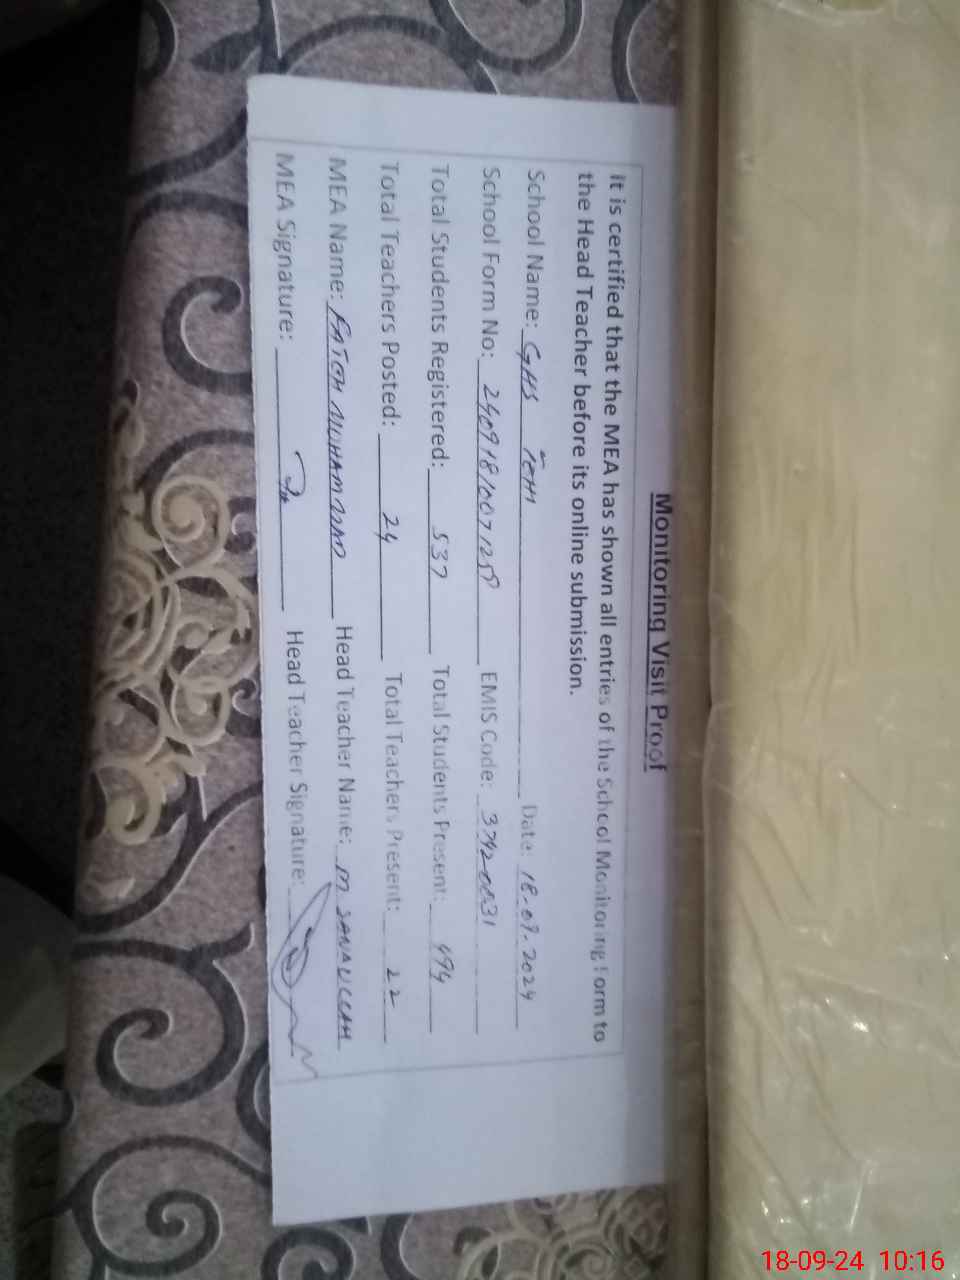 Monitoring Visit Proof
It is certified that the MEA has shown all entries of the School Monitoring Form to
the Head Teacher before its online submission.
School Name: GHS Date: 18-09-2024
School Form No: EMIS Code:
Total Students Registered: 537 Total Students Present: 494
Total Teachers Posted: 24 Total Teachers Present: 22
MEA Name: FATEH MUHAMMAD Head Teacher Name: M. SANAULLAH
MEA Signature: Head Teacher Signature:
18-09-24 10:16